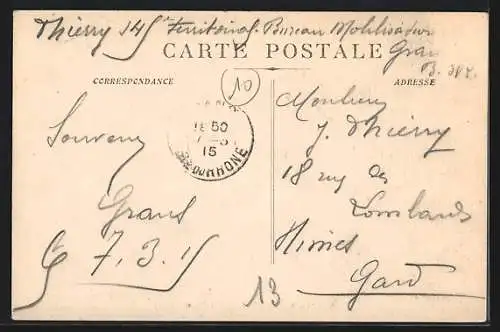 Thierry 145e Territorial. Bureau Mobilisateur
CARTE POSTALE
Grans
B. du R.
CORRESPONDANCE
ADRESSE
10
18 50
7-3
15
BES DU RHONE
Souvenir
Grans
le 7.3.15
Monsieur
J. Thierry
18 rue des
Lombards
Nîmes
Gard
13